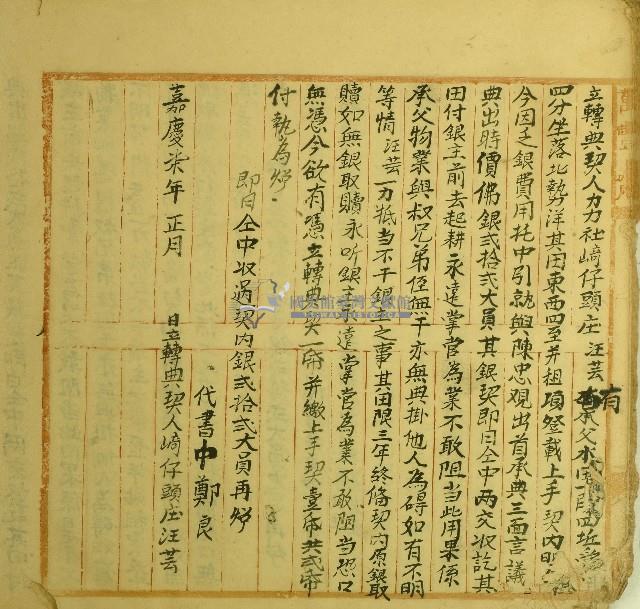 立轉典契人力力社崎仔頭庄汪芸有承父水田一段四坵
四分坐落北勢洋其田東西四至并租項登載上手契內明
今因乏銀費用托中引就與陳忠观出首承典三面言議
典出時價佛銀貳拾弍大員其銀契即日仝中兩交收訖其
田付銀主前去起耕永遠掌管為業不敢阻当此田果係
承父物業與叔兄弟侄無干亦無典掛他人為碍如有不明
等情汪芸一力抵当不干銀主之事其田限三年終備契內原銀取
贖如無銀取贖永听銀主遠掌管為業不敢阻当恐口
無憑今欲有憑立轉典契一帋并繳上手契壹帋共弍帋
付執為炤
即日仝中收過契內銀弍拾弍大員再炤
代書中鄭良
嘉慶柒年正月 日立轉典契人崎仔頭庄汪芸
國史館臺灣文獻館
TAIWAN HISTORICA